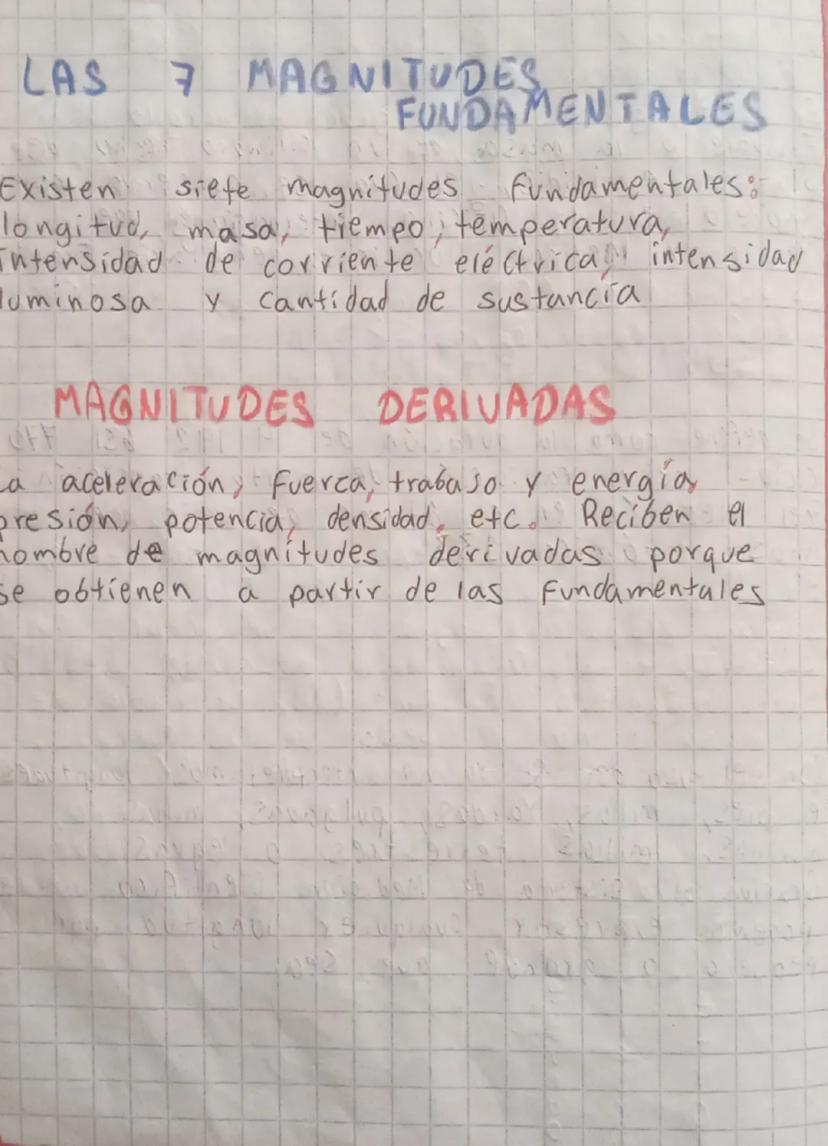 LAS 7 MAGNITUDES
FUNDAMENTALES
Existen siete magnitudes fundamentales:
longitud, masa, tiempo, temperatura,
intensidad de corriente eléctrica, intensidad
luminosa y cantidad de sustancia
MAGNITUDES DERIVADAS
La aceleración, fuerca, trabaJo y energía,
presión, potencia, densidad, etc. Reciben el
nombre de magnitudes derivadas porque
se obtienen a partir de las fundamentales